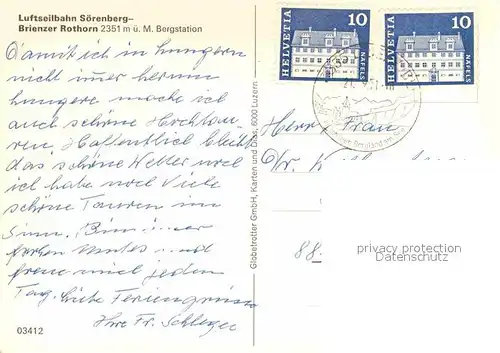 Luftseilbahn Sörenberg–
Brienzer Rothorn 2351 m ü. M. Bergstation
Damit ich in hungern
nicht immer herum
hungere mache ich
auch schöne Hochtou-
ren. Hoffentlich bleibt
das schöne Wetter weil
ich habe noch viele
schöne Touren im
Sinn. Bin immer
frohen Mutes und
freue mich jeden
Tag. Liebe Feriengrüsse
Ihre Fr.
03412
Globetrotter GmbH, Karten und Dias, 6000 Luzern
HELVETIA 10 NÄFELS
HELVETIA 10 NÄFELS
Herr Frau
88
privacy protection
Datenschutz